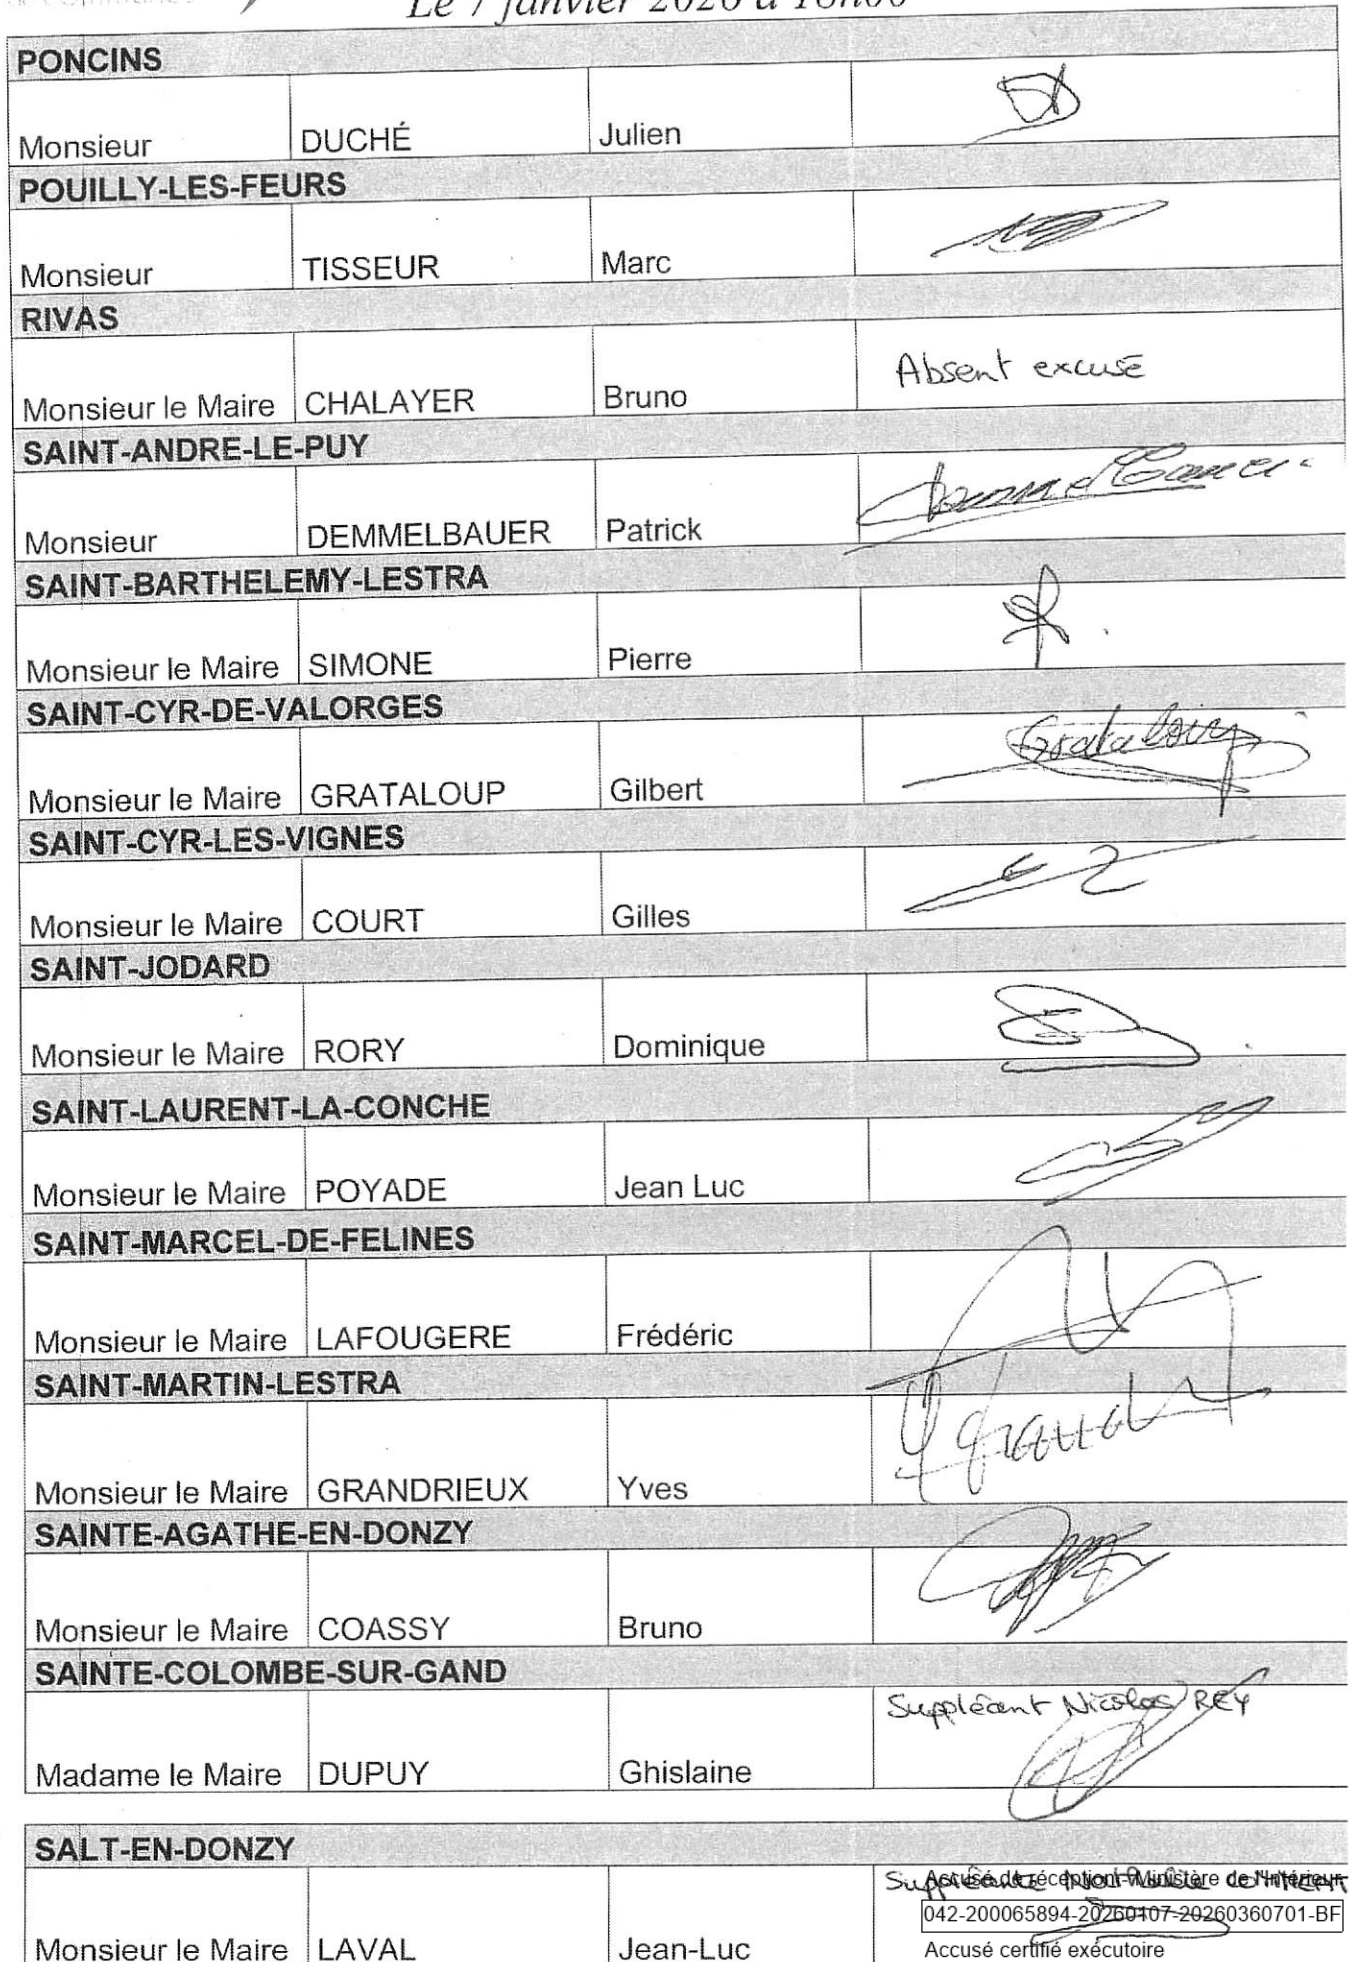 Le 7 janvier 2026 à 18h00
PONCINS
Monsieur DUCHÉ Julien
POUILLY-LES-FEURS
Monsieur TISSEUR Marc
RIVAS
Monsieur le Maire CHALAYER Bruno Absent excusé
SAINT-ANDRE-LE-PUY
Monsieur DEMMELBAUER Patrick
SAINT-BARTHELEMY-LESTRA
Monsieur le Maire SIMONE Pierre
SAINT-CYR-DE-VALORGES
Monsieur le Maire GRATALOUP Gilbert Grataloup
SAINT-CYR-LES-VIGNES
Monsieur le Maire COURT Gilles
SAINT-JODARD
Monsieur le Maire RORY Dominique
SAINT-LAURENT-LA-CONCHE
Monsieur le Maire POYADE Jean Luc
SAINT-MARCEL-DE-FELINES
Monsieur le Maire LAFOUGERE Frédéric
SAINT-MARTIN-LESTRA
Monsieur le Maire GRANDRIEUX Yves
SAINTE-AGATHE-EN-DONZY
Monsieur le Maire COASSY Bruno
SAINTE-COLOMBE-SUR-GAND
Suppléant Nicolas REY
Madame le Maire DUPUY Ghislaine
SALT-EN-DONZY
Suppléante
Accusé de réception - Ministère de l'Intérieur
042-200065894-20260107-20260360701-BF
Monsieur le Maire LAVAL Jean-Luc Accusé certifié exécutoire